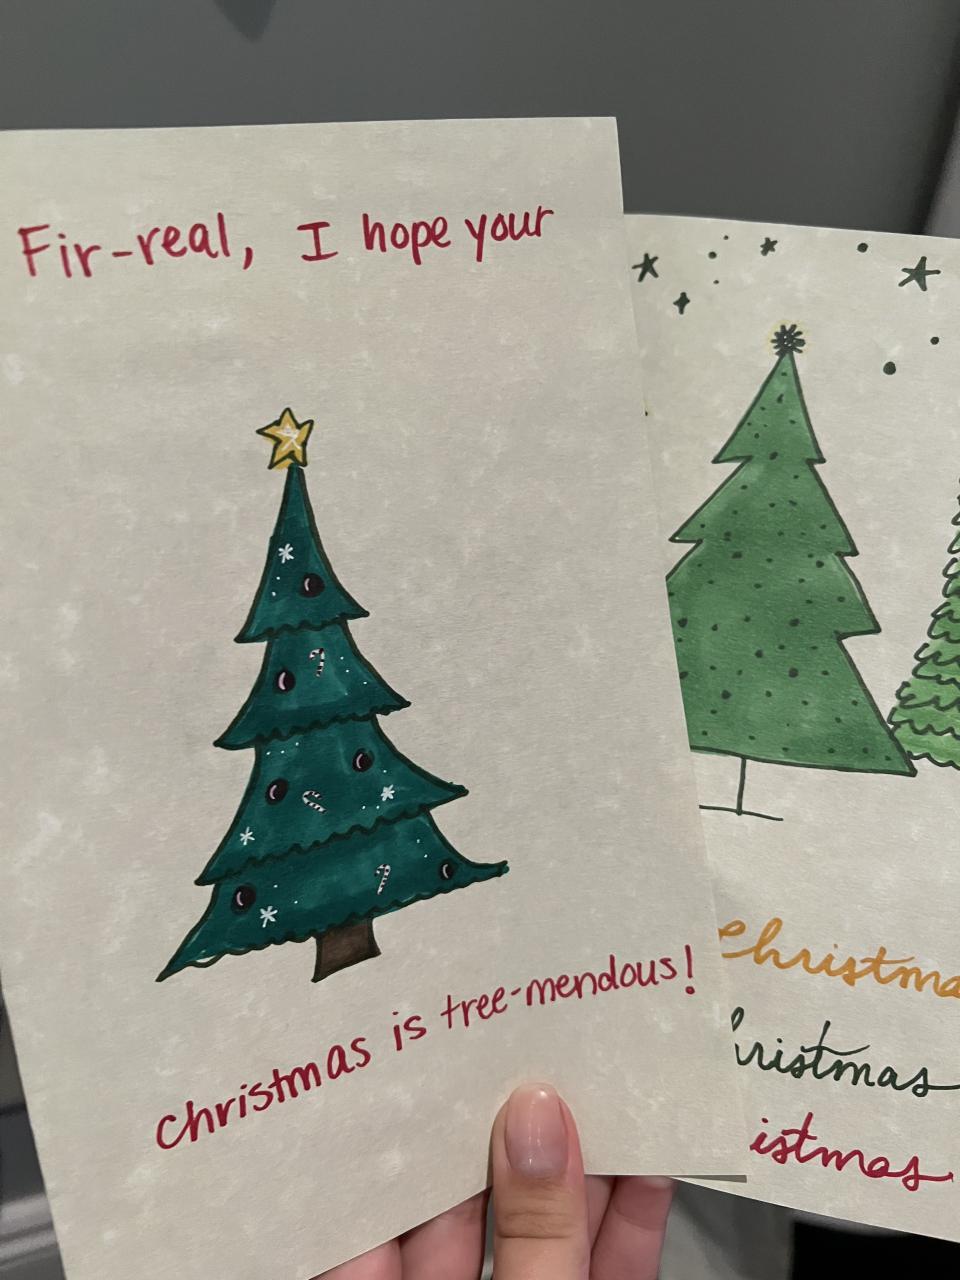 Fir-real, I hope your
christmas is tree-mendous!
christma
hristmas
istmas